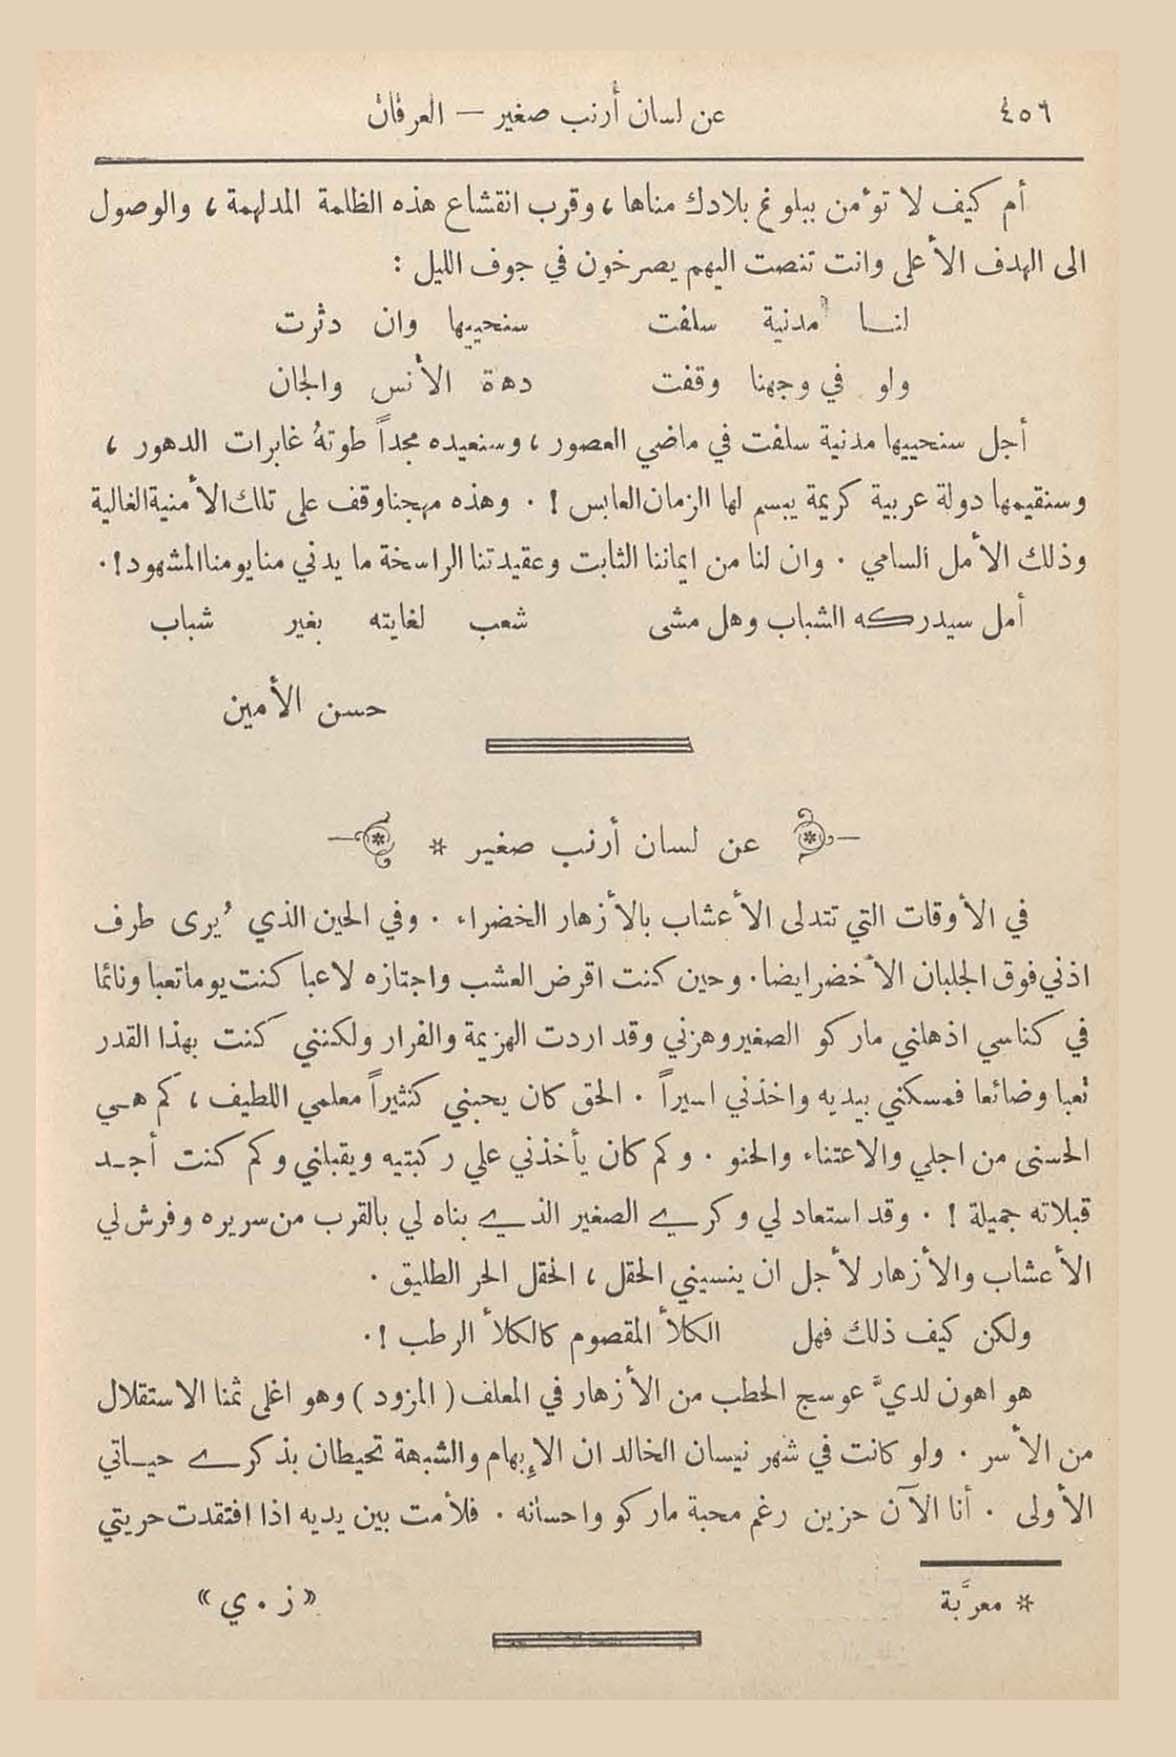 ٤٥٦
عن لسان أرنب صغير — العرفان
أم كيف لا تؤمن ببلوغ بلادك مناها ، وقرب انقشاع هذه الظلمة المدلهمة ، والوصول
الى الهدف الأعلى وانت تنصت اليهم يصرخون في جوف الليل :
لنـا مدنية سلفت سنحييها وان دثرت
ولو في وجهنا وقفت دهاة الأنس والجان
أجل سنحييها مدنية سلفت في ماضي العصور ، وسنعيده مجداً طوتهُ غابرات الدهور ،
وسنقيمها دولة عربية كريمة يبسم لها الزمان العابس ! . وهذه مهجنا وقف على تلك الأمنية الغالية
وذلك الأمل السامي . وان لنا من ايماننا الثابت وعقيدتنا الراسخة ما يدني منا يومنا المشهود ! .
أمل سيدركه الشباب وهل مشى شعب لغايته بغير شباب
حسن الأمين
عن لسان أرنب صغير *
في الأوقات التي تتدلى الأعشاب بالأزهار الخضراء . وفي الحين الذي يُرى طرف
اذني فوق الجلبان الأخضر ايضا . وحين كنت اقرض العشب واجتازه لاعبا كنت يوما تعبا ونائما
في كناسي اذهلني ماركو الصغير وهزني وقد اردت الهزيمة والفرار ولكنني كنت بهذا القدر
تعبا وضائعا فمسكني بيديه واخذني اسيراً . الحق كان يحبني كثيراً معلمي اللطيف ، كم هـي
الحسنى من اجلي والاعتناء والحنو . وكم كان يأخذني علي ركبتيه ويقبلني وكم كنت أجـد
قبلاته جميلة ! . وقد استعاد لي وكري الصغير الذي بناه لي بالقرب من سريره وفرش لي
الأعشاب والأزهار لأجل ان ينسيني الحقل ، الحقل الحر الطليق .
ولكن كيف ذلك فهل الكلأ المقصوم كالكلأ الرطب ! .
هو اهون لديَّ عوسج الحطب من الأزهار في المعلف ( المزود ) وهو اغلى ثمنا الاستقلال
من الأسر . ولو كانت في شهر نيسان الخالد ان الإبهام والشبهة تحيطان بذكرى حيـاتي
الأولى . أنا الآن حزين رغم محبة ماركو واحسانه . فلأمت بين يديه اذا افتقدت حريتي
* معرَّبة
«ز . ي»